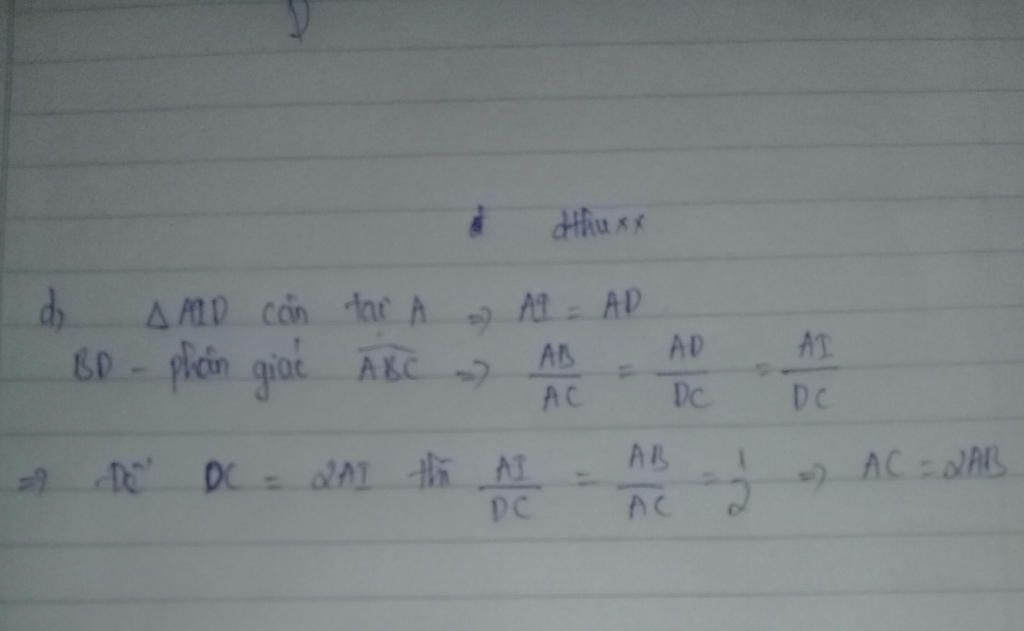 D
d) Δ AID cân tại A => AI = AD
BD - phân giác ABC => AB/AC = AD/DC = AI/DC
=> Để DC = 2AI thì AI/DC = AB/AC = 1/2 => AC = 2AB